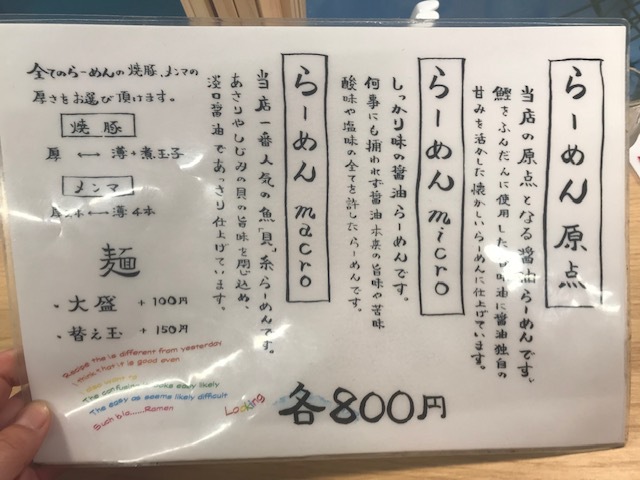 らーめん 原点
当店の原点となる醤油らーめんです。
鰹をふんだんに使用した
醤油独自の
甘みを活かした懐かしいらーめんに仕上げています。
らーめん micro
しっかり味の醤油らーめんです。
何事にも捕われず醤油本来の旨味や苦味
酸味や塩味の全てを許したらーめんです。
らーめん macro
当店一番人気の魚「貝」系らーめんです。
あさりやしじみの貝の旨味を閉じ込め、
淡口醤油であっさり仕上げています。
全てのらーめんの焼豚、メンマの
厚さをお選び頂けます。
焼豚
厚 ←→ 薄+煮玉子
メンマ
本 ←→ 薄4本
麺
・大盛 +100円
・替え玉 +150円
Recipe the is different from yesterday
I think that it is good even
The easy as seeme likely difficult
Such bla......Ramen
Looking
各800円